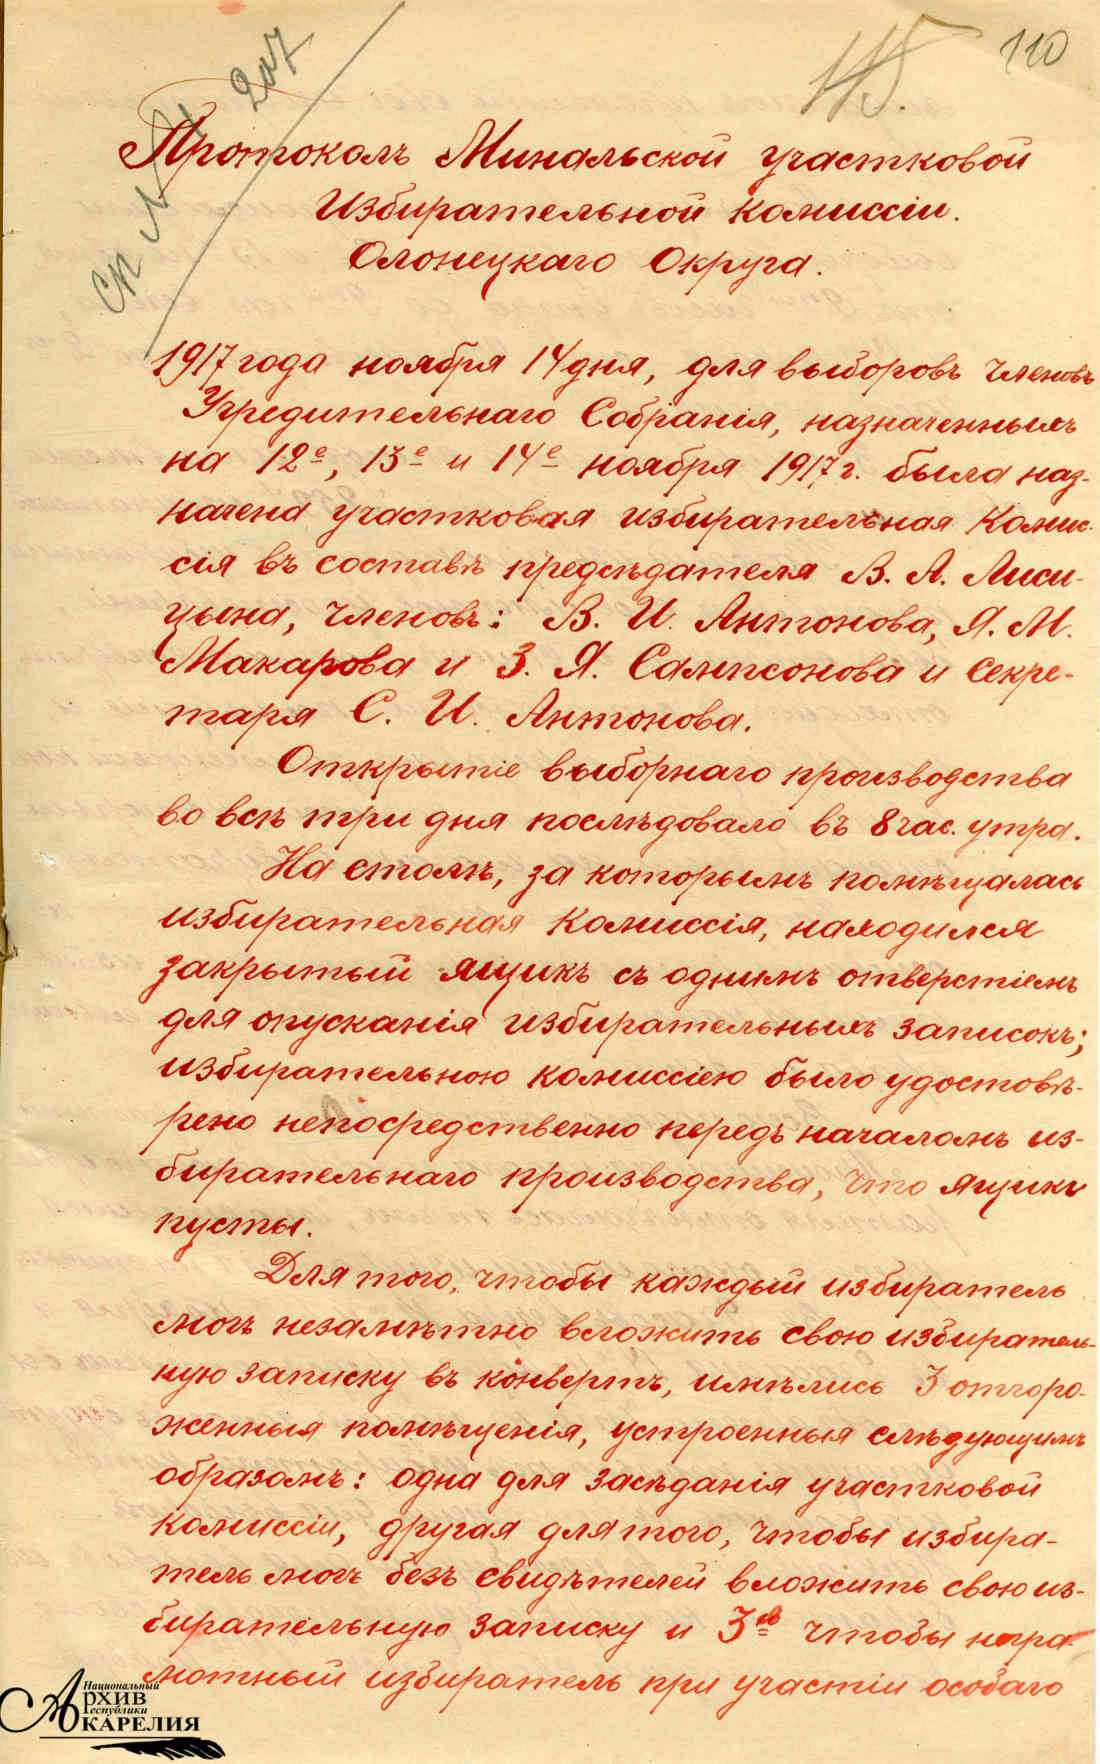 115.
110
сп № 1 207
Протоколъ Минальской участковой
Избирательной Комиссіи.
Олонецкаго Округа.
1917 года ноября 14 дня, для выборовъ Членовъ
Учредительнаго Собранія, назначенныхъ
на 12е, 13е и 14е ноября 1917 г. была наз-
начена участковая избирательная Комис-
сія въ составѣ предсѣдателя В. А. Лиси-
цына, Членовъ: В. И. Антонова, Я. М.
Макарова и З. Я. Сампсонова и Секре-
таря С. И. Антонова.
Открытіе выборнаго производства
во всѣ три дня послѣдовало въ 8 час. утра.
На столѣ, за которымъ помѣщалась
избирательная Комиссія, находился
закрытый ящикъ съ однимъ отверстіемъ
для опусканія избирательныхъ записокъ;
избирательною комиссіею было удостовѣ-
рено непосредственно передъ началомъ из-
бирательнаго производства, что ящики
пусты.
Для того, чтобы каждый избиратель
могъ незамѣтно вложить свою избиратель-
ную записку въ конвертъ, имѣлись 3 отгоро-
женныя помѣщенія, устроенныя слѣдующимъ
образомъ: одна для засѣданія участковой
комиссіи, другая для того, чтобы избира-
тель могъ безъ свидѣтелей вложить свою из-
бирательную записку и 3я чтобы негра-
мотный избиратель при участіи особаго
Национальный
Архив
Республики
Карелия